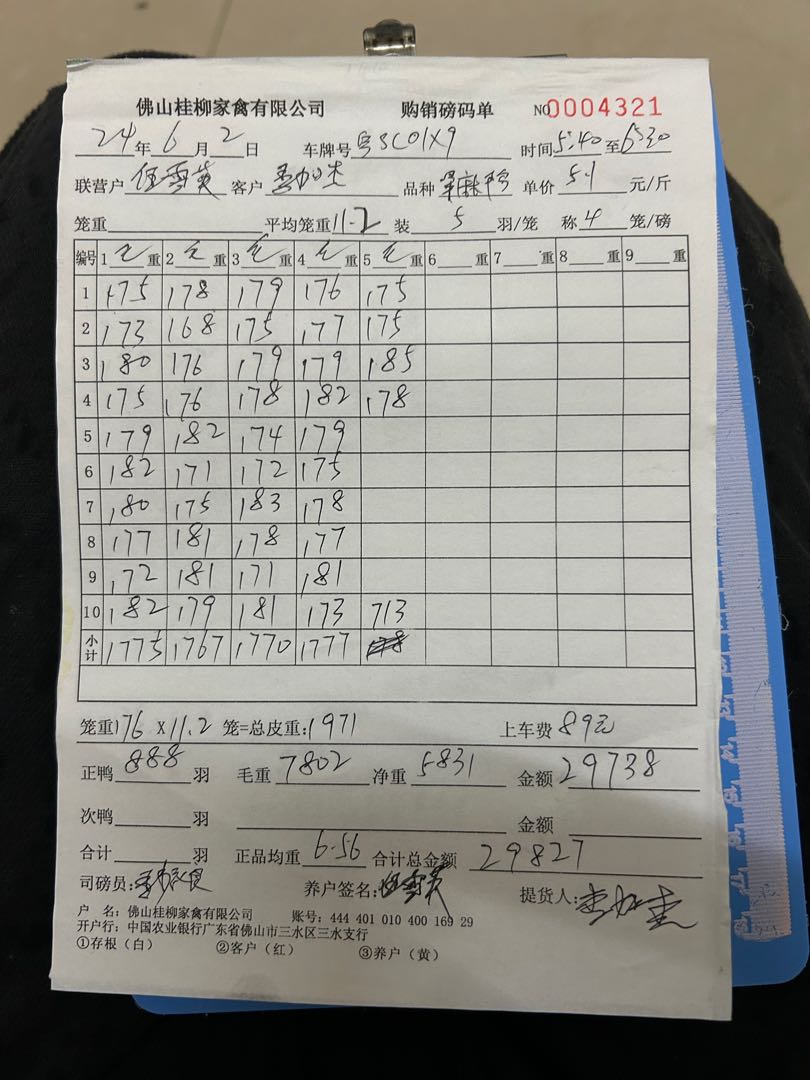 佛山桂柳家禽有限公司 购销磅码单 NO 0004321
24年6月2日 车牌号 粤SC01X9 时间5:40至6:30
联营户 任雪英 客户 品种 单价 5.1 元/斤
笼重 平均笼重11.2 装 5 羽/笼 称 4 笼/磅
编号 1 毛 重 2 毛 重 3 毛 重 4 毛 重 5 毛 重 6 重 7 重 8 重 9 重
1 175 178 179 176 175
2 173 168 175 177 175
3 180 176 179 179 185
4 175 176 178 182 178
5 179 182 174 179
6 182 171 172 175
7 180 175 183 178
8 177 181 178 177
9 172 181 171 181
10 182 179 181 173 713
小计 1775 1767 1770 1777
笼重176 X11.2 笼=总皮重:1971 上车费 89元
正鸭 888 羽 毛重 7802 净重 5831 金额 29738
次鸭 羽 金额
合计 羽 正品均重 6.56 合计总金额 29827
司磅员: 养户签名:任雪英 提货人:
户 名:佛山桂柳家禽有限公司 账号:444 401 010 400 169 29
开户行:中国农业银行广东省佛山市三水区三水支行
①存根(白) ②客户(红) ③养户(黄)